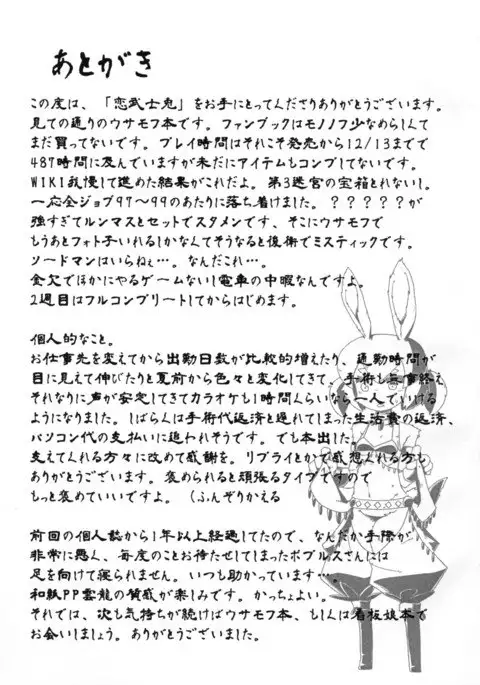 あとがき
この度は、「恋武士兎」をお手にとってくださりありがとうございます。
見ての通りのウサモフ本です。ファンブックはモノノフ少なめらしくて
まだ買ってないです。プレイ時間はそれこそ発売から12/13までで
487時間に及んでいますが未だにアイテムもコンプしてないです。
WIKI我慢して進めた結果がこれだよ。第3迷宮の宝箱とれないし。
一応全ジョブ97~99のあたりに落ち着けました。?????が
強すぎてルンマスとセットでスタメンです、そこにウサモフで
もうあとフォト子いれるしかなくてそうなると後衛でミスティックです。
ソードマンはいらねぇ…。なんだこれ…。
金欠でほかにやるゲームないし電車の中暇なんですよ。
2週目はフルコンプリートしてからはじめます。
個人的なこと。
お仕事先を変えてから出勤日数が比較的増えたり、通勤時間が
目に見えて伸びたりと夏前から色々と変化してきて、手術も無事終え
それなりに声が安定してきてカラオケも1時間くらいなら一人でいける
ようになりました。しばらくは手術代返済と遅れてしまった生活費の返済、
パソコン代の支払いに追われそうです。でも本出した。
支えてくれる方々に改めて感謝を。リプライとかで感想くれる方も
ありがとうございます。褒められると頑張るタイプですので
もっと褒めていいですよ。(ふんぞりかえる
前回の個人誌から1年以上経過してたので、なんだか手際が
非常に悪く、毎度のことお待たせしてしまったポプルスさんには
足を向けて寝られません。いつも助かっています…。
和紙PP雲龍の質感が楽しみです。かっちょいい。
それでは、次も気持ちが続けばウサモフ本、もしくは看板娘本で
お会いしましょう。ありがとうございました。